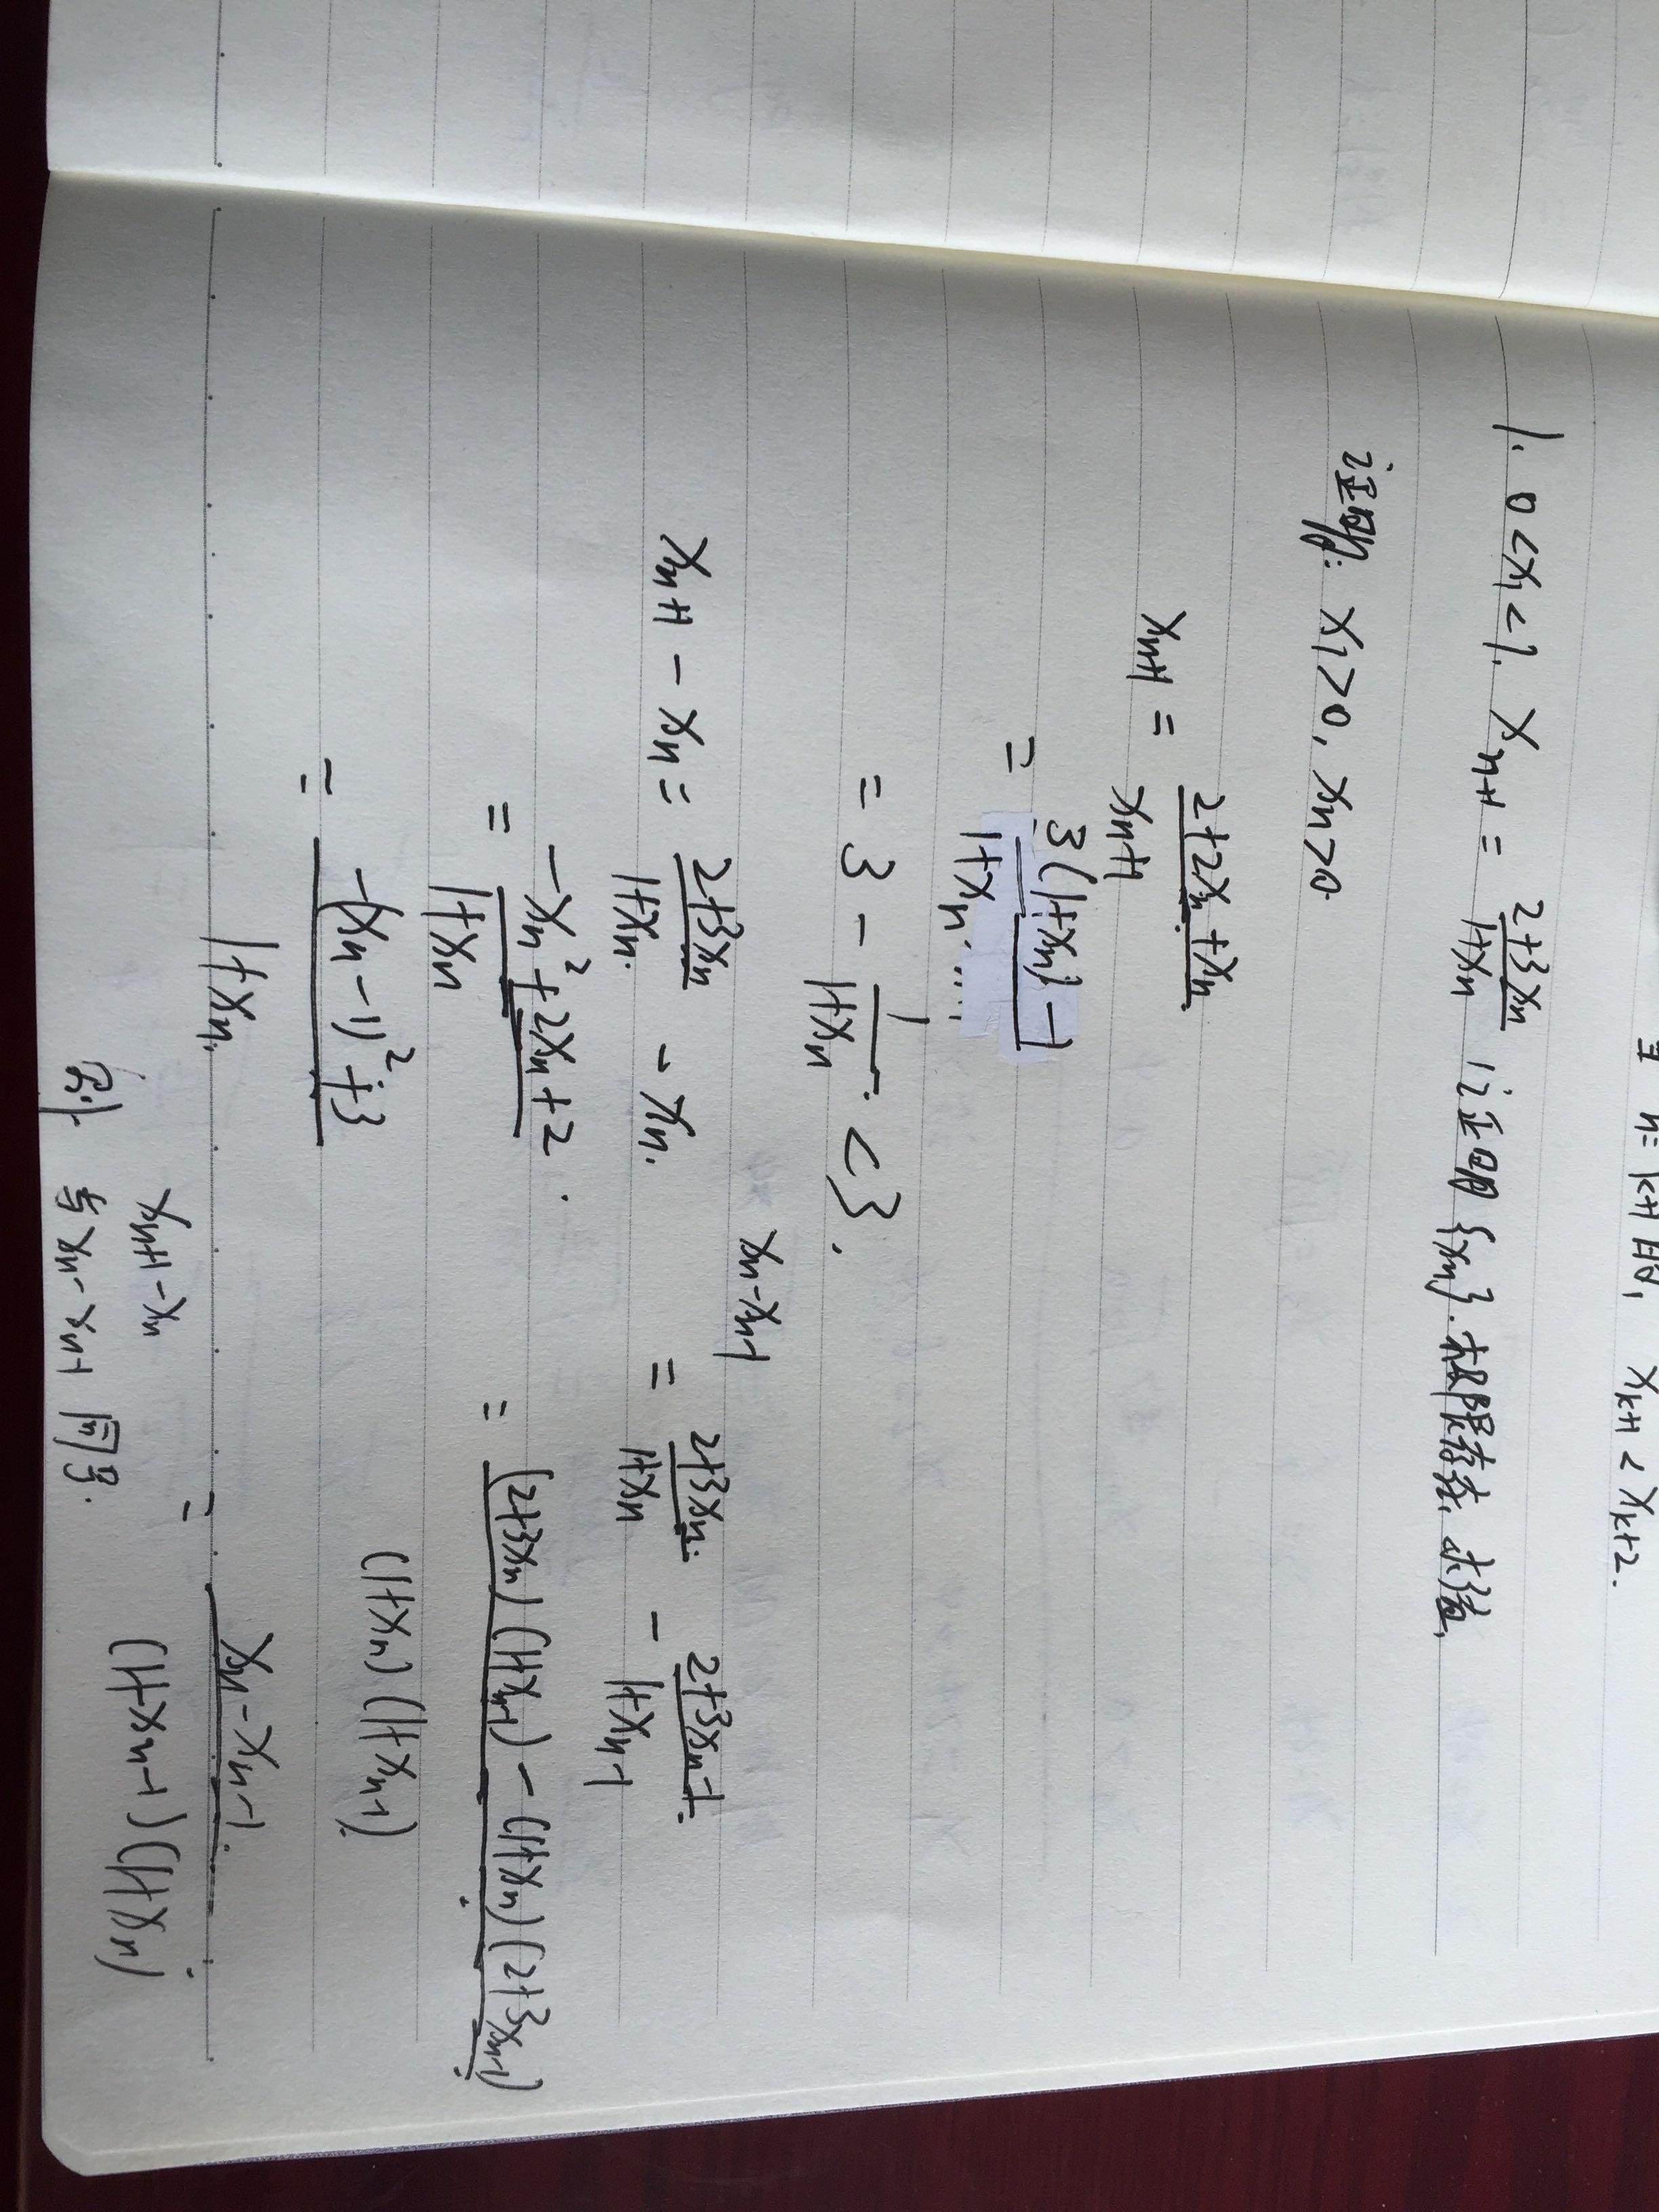 当 n=k+1时, x_{k+1} < x_{k+2}.
1. 0<x_1<1. x_{n+1} = \frac{2+3x_n}{1+x_n} 证明{x_n}.极限存在,求值.
证明: x_1>0, x_n>0
x_{n+1} = \frac{2+2x_n+x_n}{x_n+1}
= \frac{3(1+x_n)-1}{1+x_n}
= 3 - \frac{1}{1+x_n} <3.
x_{n+1} - x_n = \frac{2+3x_n}{1+x_n} - x_n.
= \frac{-x_n^2+2x_n+2}{1+x_n}
= \frac{-(x_n-1)^2+3}{1+x_n}
x_n-x_{n-1}
= \frac{2+3x_n}{1+x_n} - \frac{2+3x_{n-1}}{1+x_{n-1}}
= \frac{(2+3x_n)(1+x_{n-1}) - (1+x_n)(2+3x_{n-1})}{(1+x_n)(1+x_{n-1})}
= \frac{x_n-x_{n-1}}{(1+x_{n-1})(1+x_n)}
x_{n+1}-x_n
则 与x_n-x_{n-1} 同号.